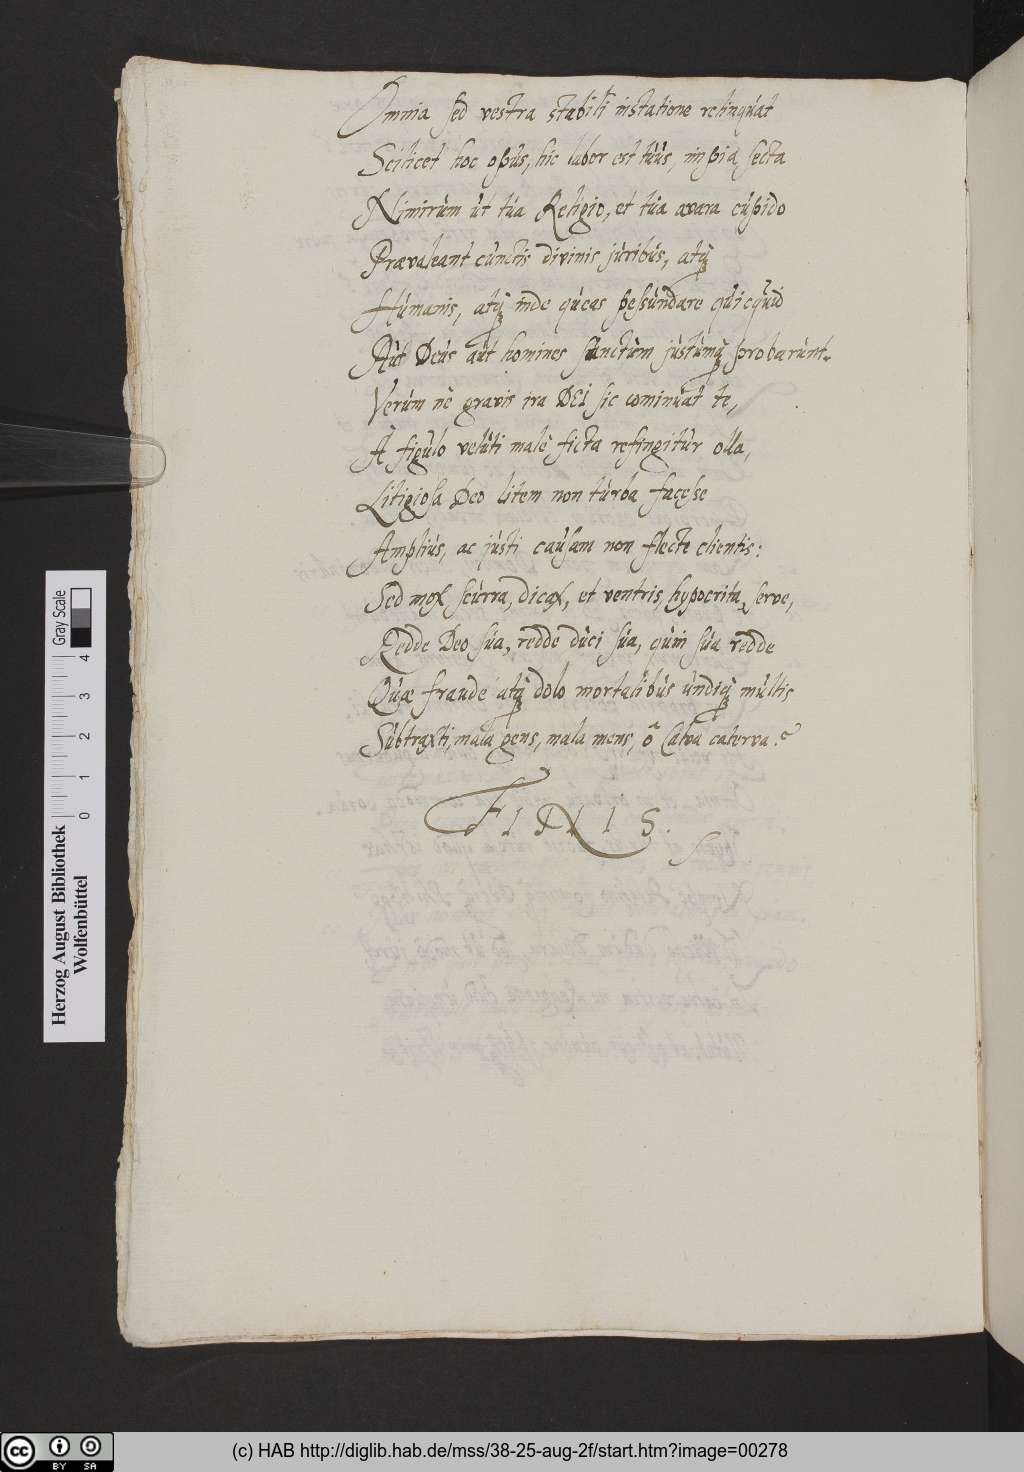 Omnia sed vestra stabili instatione relinquat
Scilicet hoc opus, hic labor est tuus, impia secta
Nimirum ut tua Religio, et tua avara cupido
Prævaleant cunctis divinis juribus, atq₃
Humanis, atq₃ inde queas pessundare quicquid
Aut Deus aut homines sanctum justumq₃ probarunt.
Verum nè gravis ira DEI sic cominuat te,
A figulo veluti malè ficta refingitur olla,
Litigiosa Deo litem non turba facesse
Amplius, ac justi causam non flecte clientis:
Sed mox scurra, dicax, et ventris hypocrita, serve,
Redde Deo sua, redde duci sua, quin sua redde
Quæ fraude atq₃ dolo mortalibus undiq₃ multis
Subtraxti, mala gens, mala mens, ô calva caterva.
FINIS.
Herzog August Bibliothek
Wolfenbüttel
0 1 2 3 4
Gray Scale
cc BY SA
(c) HAB http://diglib.hab.de/mss/38-25-aug-2f/start.htm?image=00278